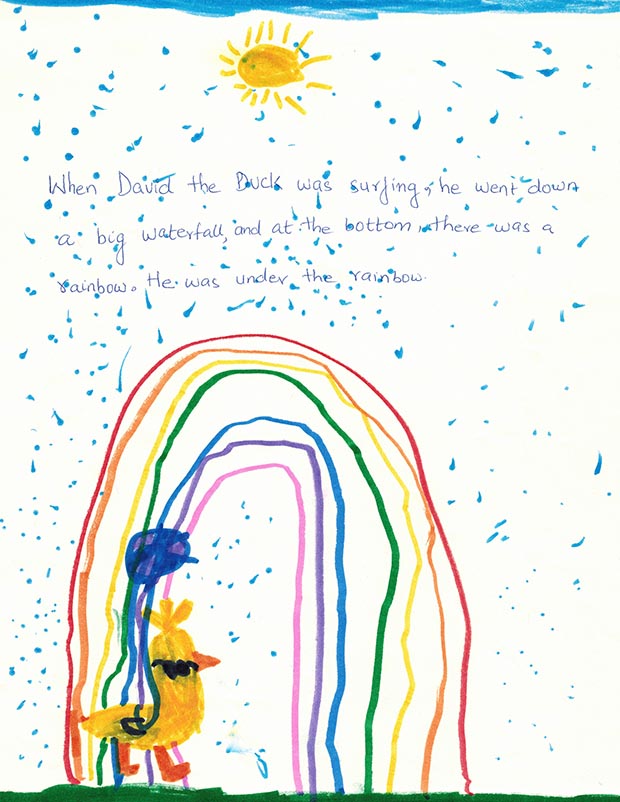 When David the Duck was surfing, he went down
a big waterfall, and at the bottom, there was a
rainbow. He was under the rainbow.